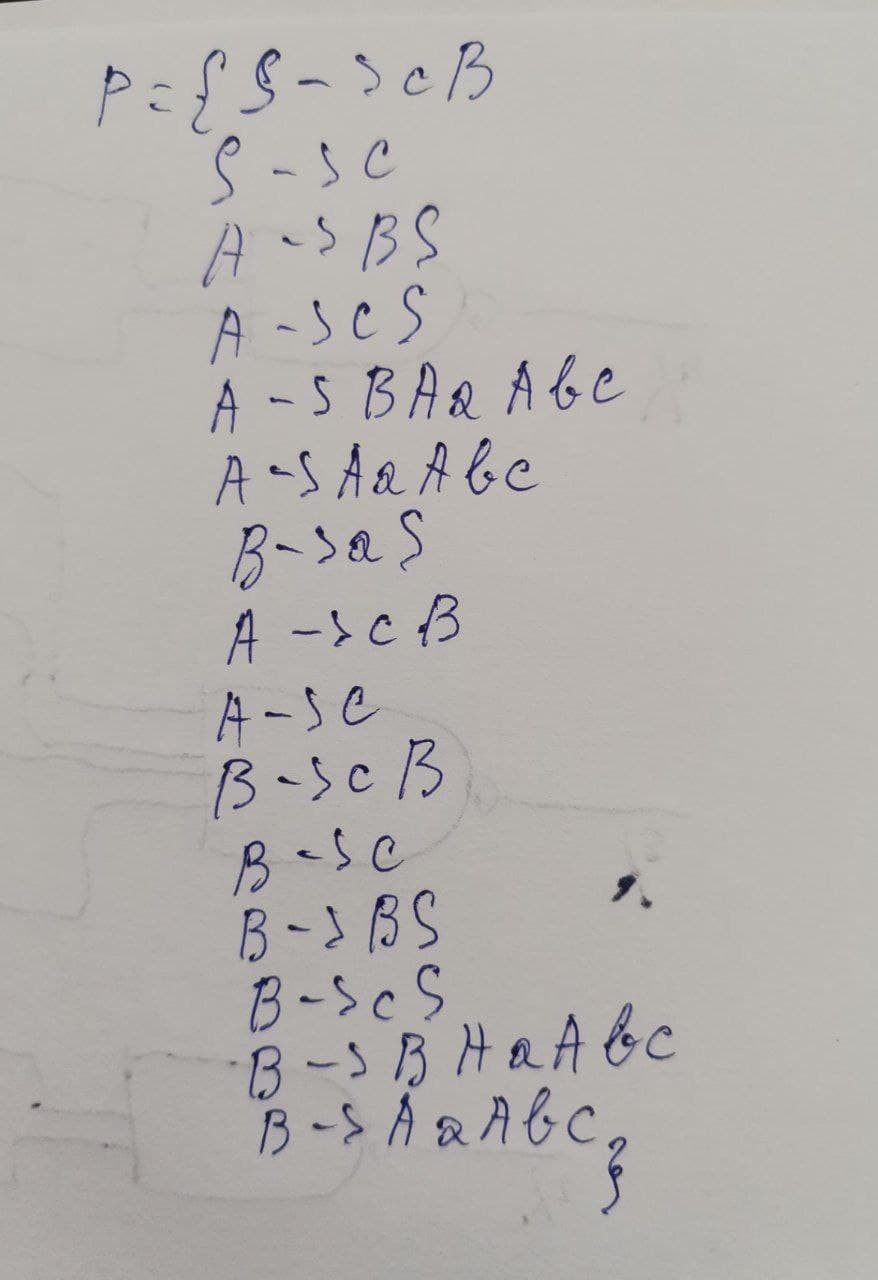 P={S->cB
S->c
A->BS
A->cS
A->BAaAbc
A->AaAbc
B->aS
A->cB
A->c
B->cB
B->c
B->BS
B->cS
B->BAaAbc
B->AaAbc}